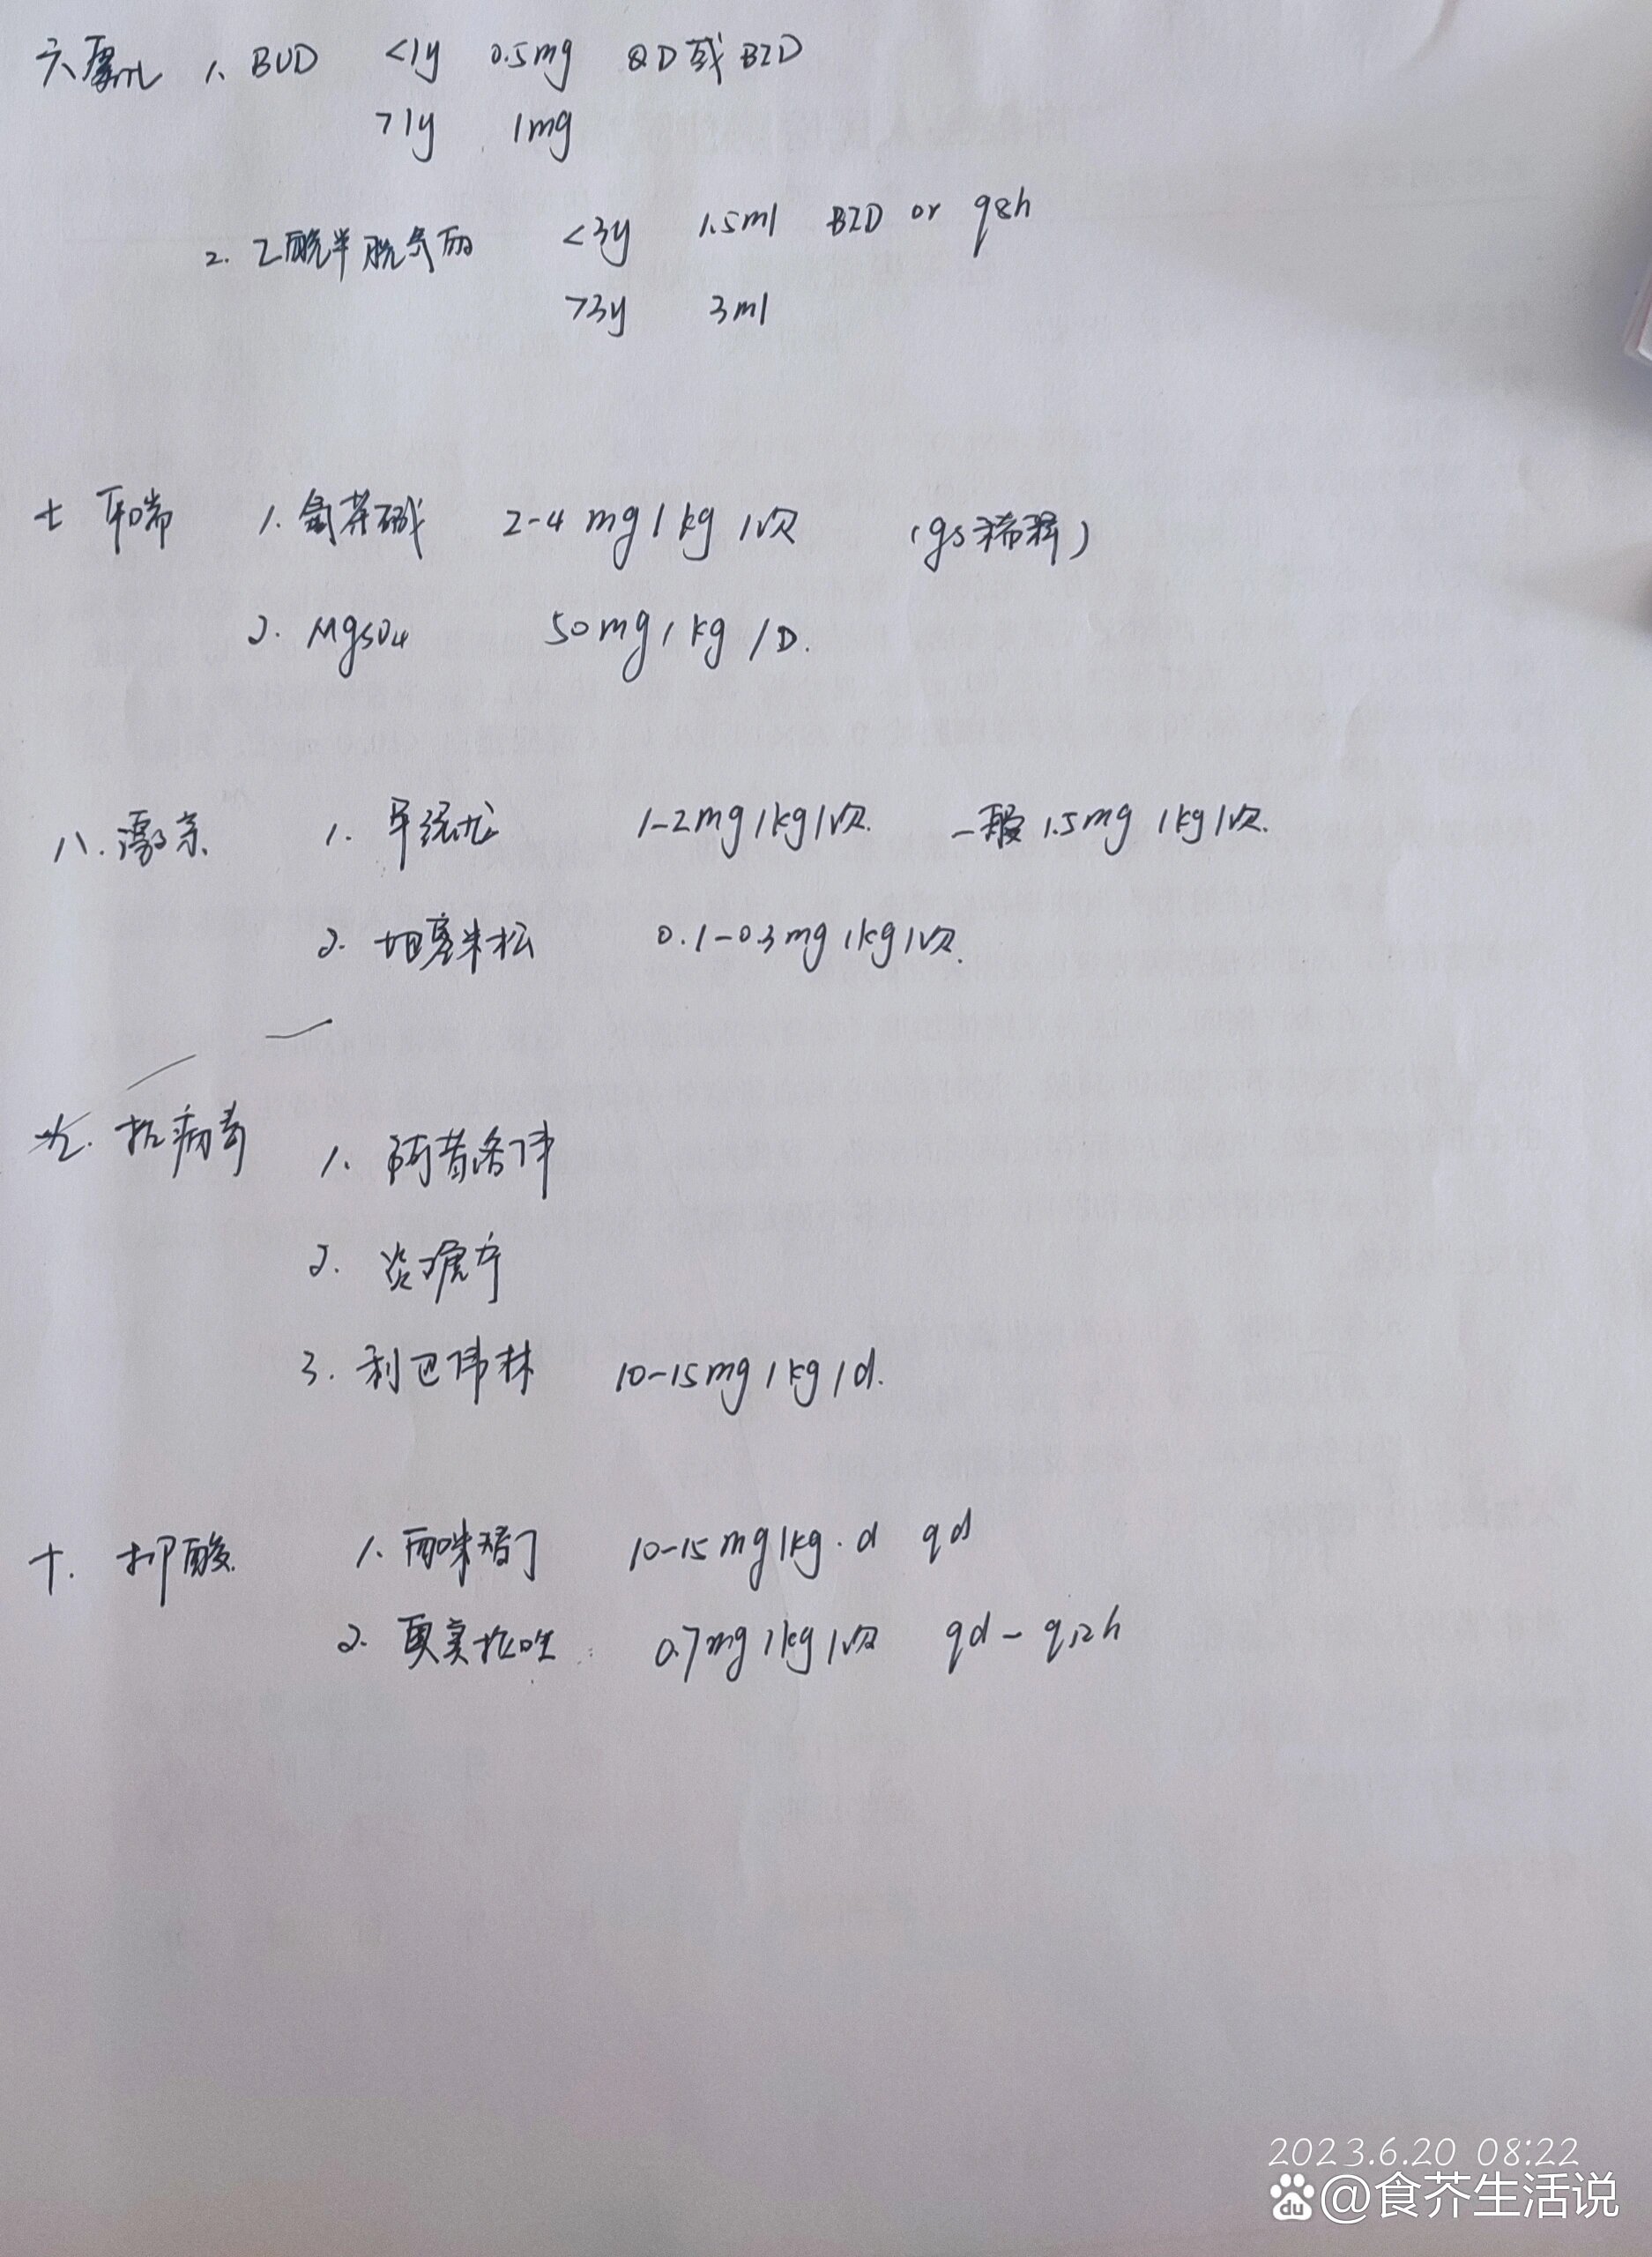 六 雾化 1. BUD <1y 0.5mg QD或BID
>1y 1mg
2. 乙酰半胱氨酸 <3y 1.5ml BID or q8h
>3y 3ml
七 平喘 1. 氨茶碱 2-4mg/kg/次 (gs稀释)
2. MgSO4 50mg/kg/D.
八. 激素 1. 甲强龙 1-2mg/kg/次. 一般1.5mg/kg/次.
2. 地塞米松 0.1-0.3mg/kg/次.
九. 抗病毒 1. 阿昔洛韦
2. 炎琥宁
3. 利巴韦林 10-15mg/kg/d.
十. 抑酸. 1. 西咪替丁 10-15mg/kg.d qd
2. 奥美拉唑 0.7mg/kg/次 qd-q12h
2023.6.20 08:22
du @食芥生活说